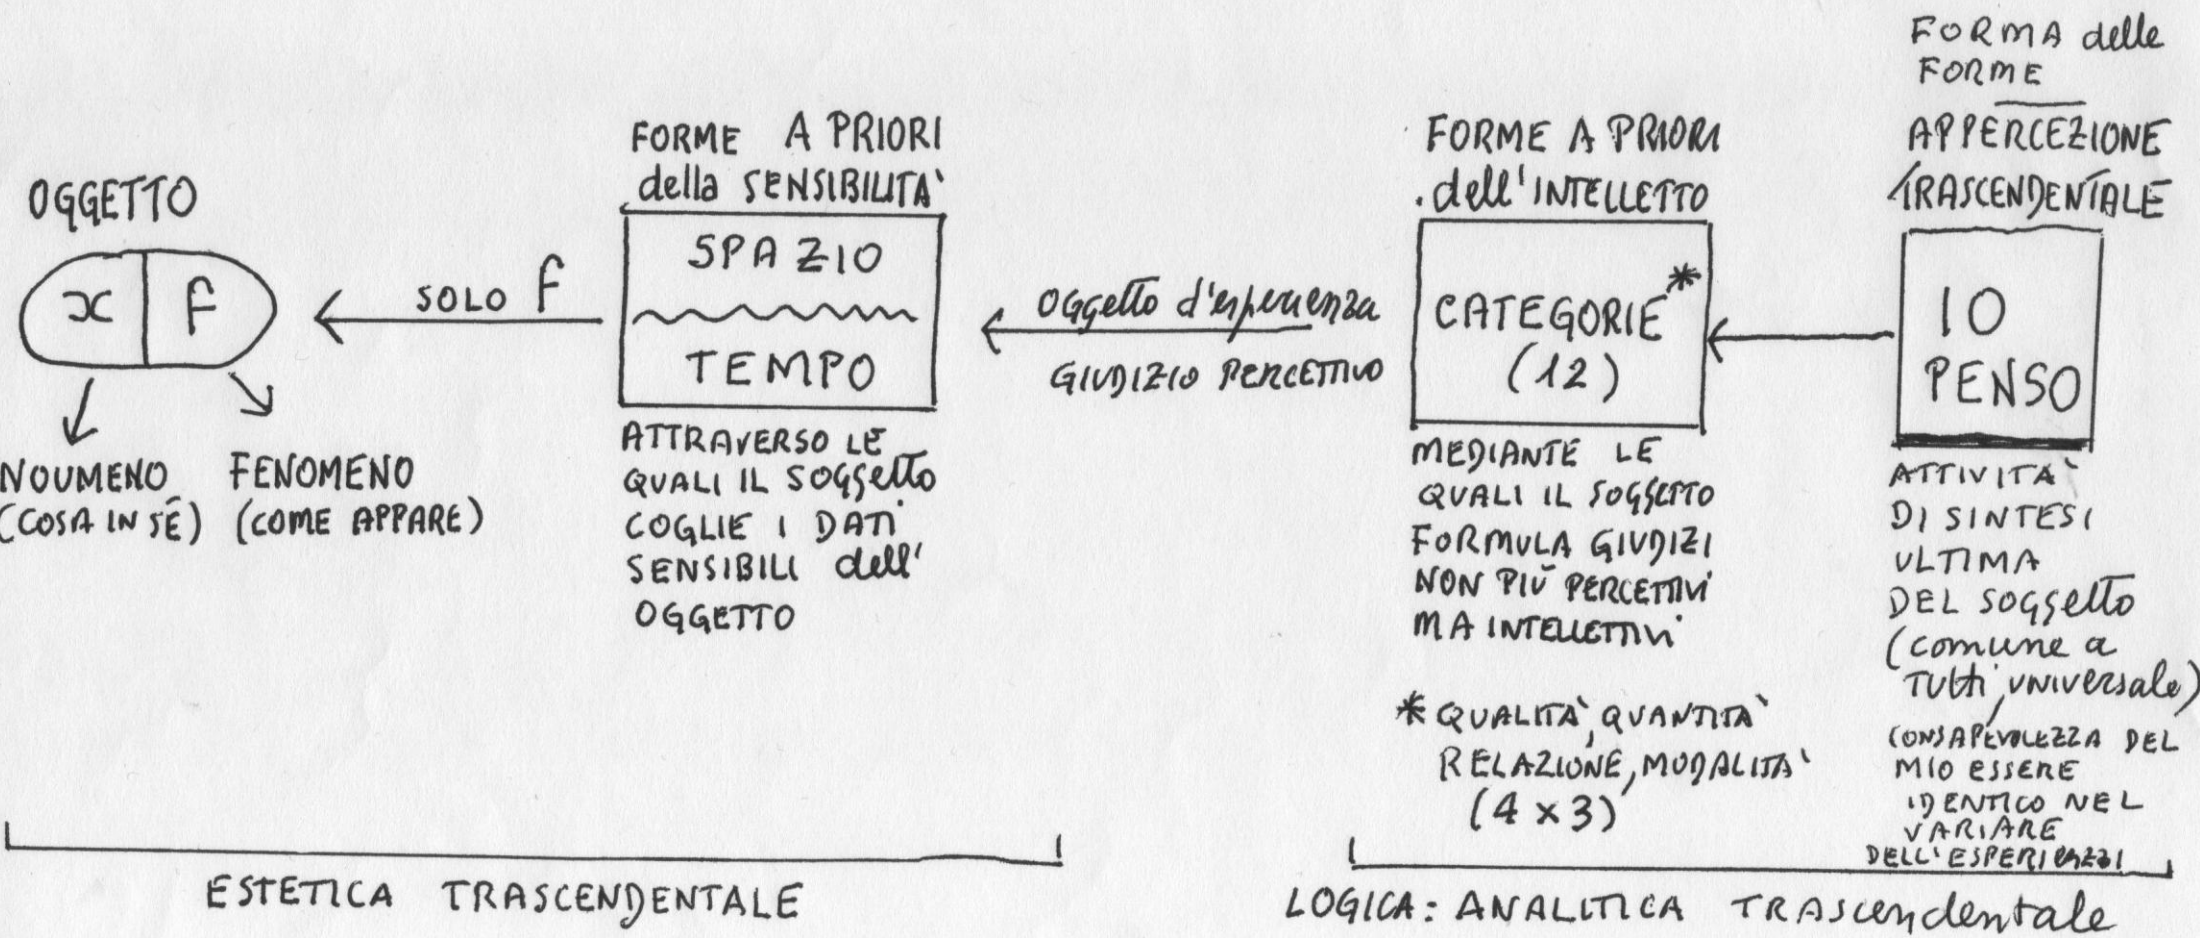 OGGETTO
x F
NOUMENO
(COSA IN SÉ)
FENOMENO
(COME APPARE)
SOLO F
FORME A PRIORI
della SENSIBILITA'
SPAZIO
TEMPO
ATTRAVERSO LE
QUALI IL SOGGETTO
COGLIE I DATI
SENSIBILI dell'
OGGETTO
Oggetto d'esperienza
GIUDIZIO PERCETTIVO
FORME A PRIORI
dell'INTELLETTO
CATEGORIE*
(12)
MEDIANTE LE
QUALI IL SOGGETTO
FORMULA GIUDIZI
NON PIÙ PERCETTIVI
MA INTELLETTIVI
* QUALITA', QUANTITA'
RELAZIONE, MODALITA'
(4 x 3)
FORMA delle
FORME
APPERCEZIONE
TRASCENDENTALE
IO
PENSO
ATTIVITA'
DI SINTESI
ULTIMA
DEL SOGGETTO
(comune a
TUTTI, UNIVERSALE)
CONSAPEVOLEZZA DEL
MIO ESSERE
IDENTICO NEL
VARIARE
ESTETICA TRASCENDENTALE
LOGICA: ANALITICA TRASCENDENTALE